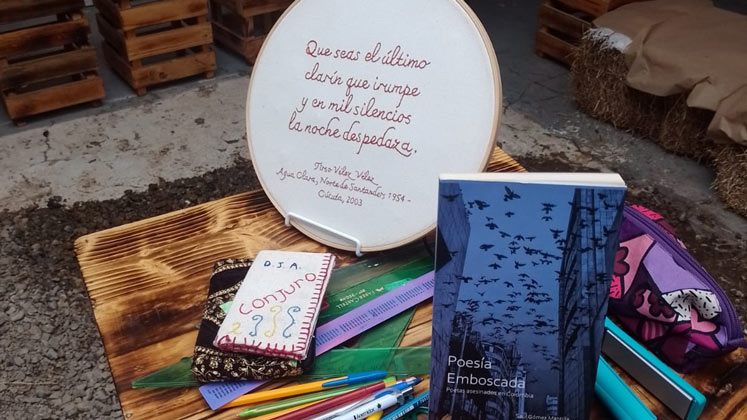 Que seas el último
clarín que irrumpe
y en mil silencios
la noche despedaza.
Tirso Vélez Vélez
Agua Clara, Norte de Santander, 1954 -
Cúcuta, 2003
D.J.A.
Conjuro
Poesía
Emboscada
Poetas asesinados en Colombia
Gómez